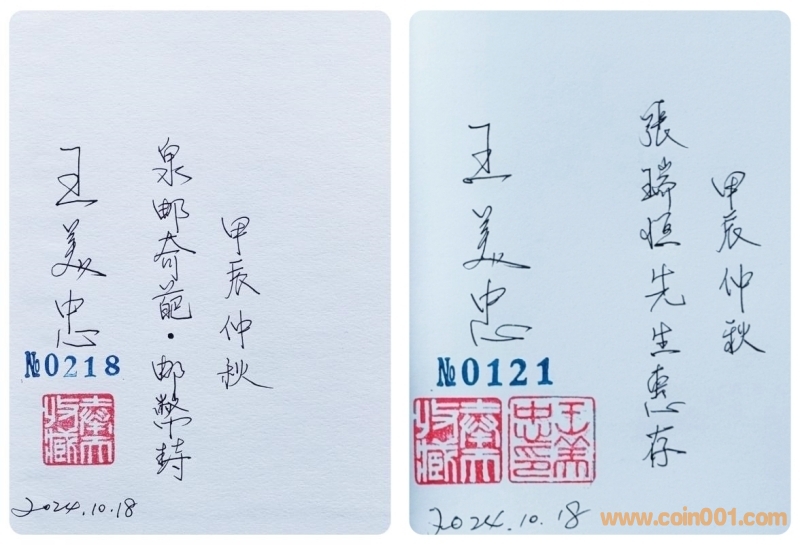 甲辰仲秋
泉邮奇葩·邮幣封
王美忠
№0218
收藏
2024.10.18
甲辰仲秋
張瑞恒先生惠存
王美忠
№0121
收藏
王美忠印
2024.10.18
www.coin001.com